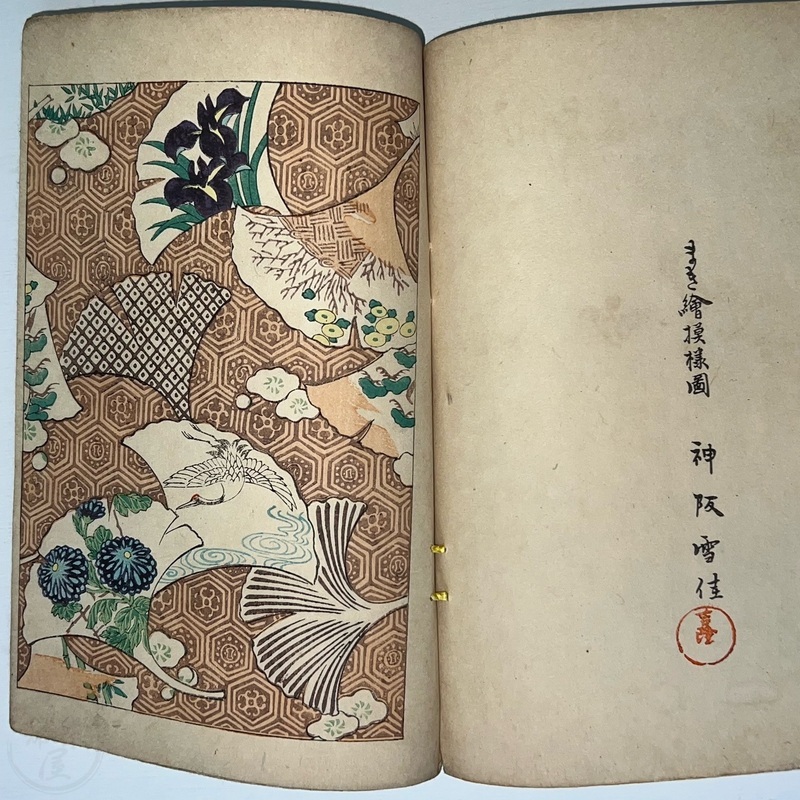 まき繪摸様圖　神阪雪佳